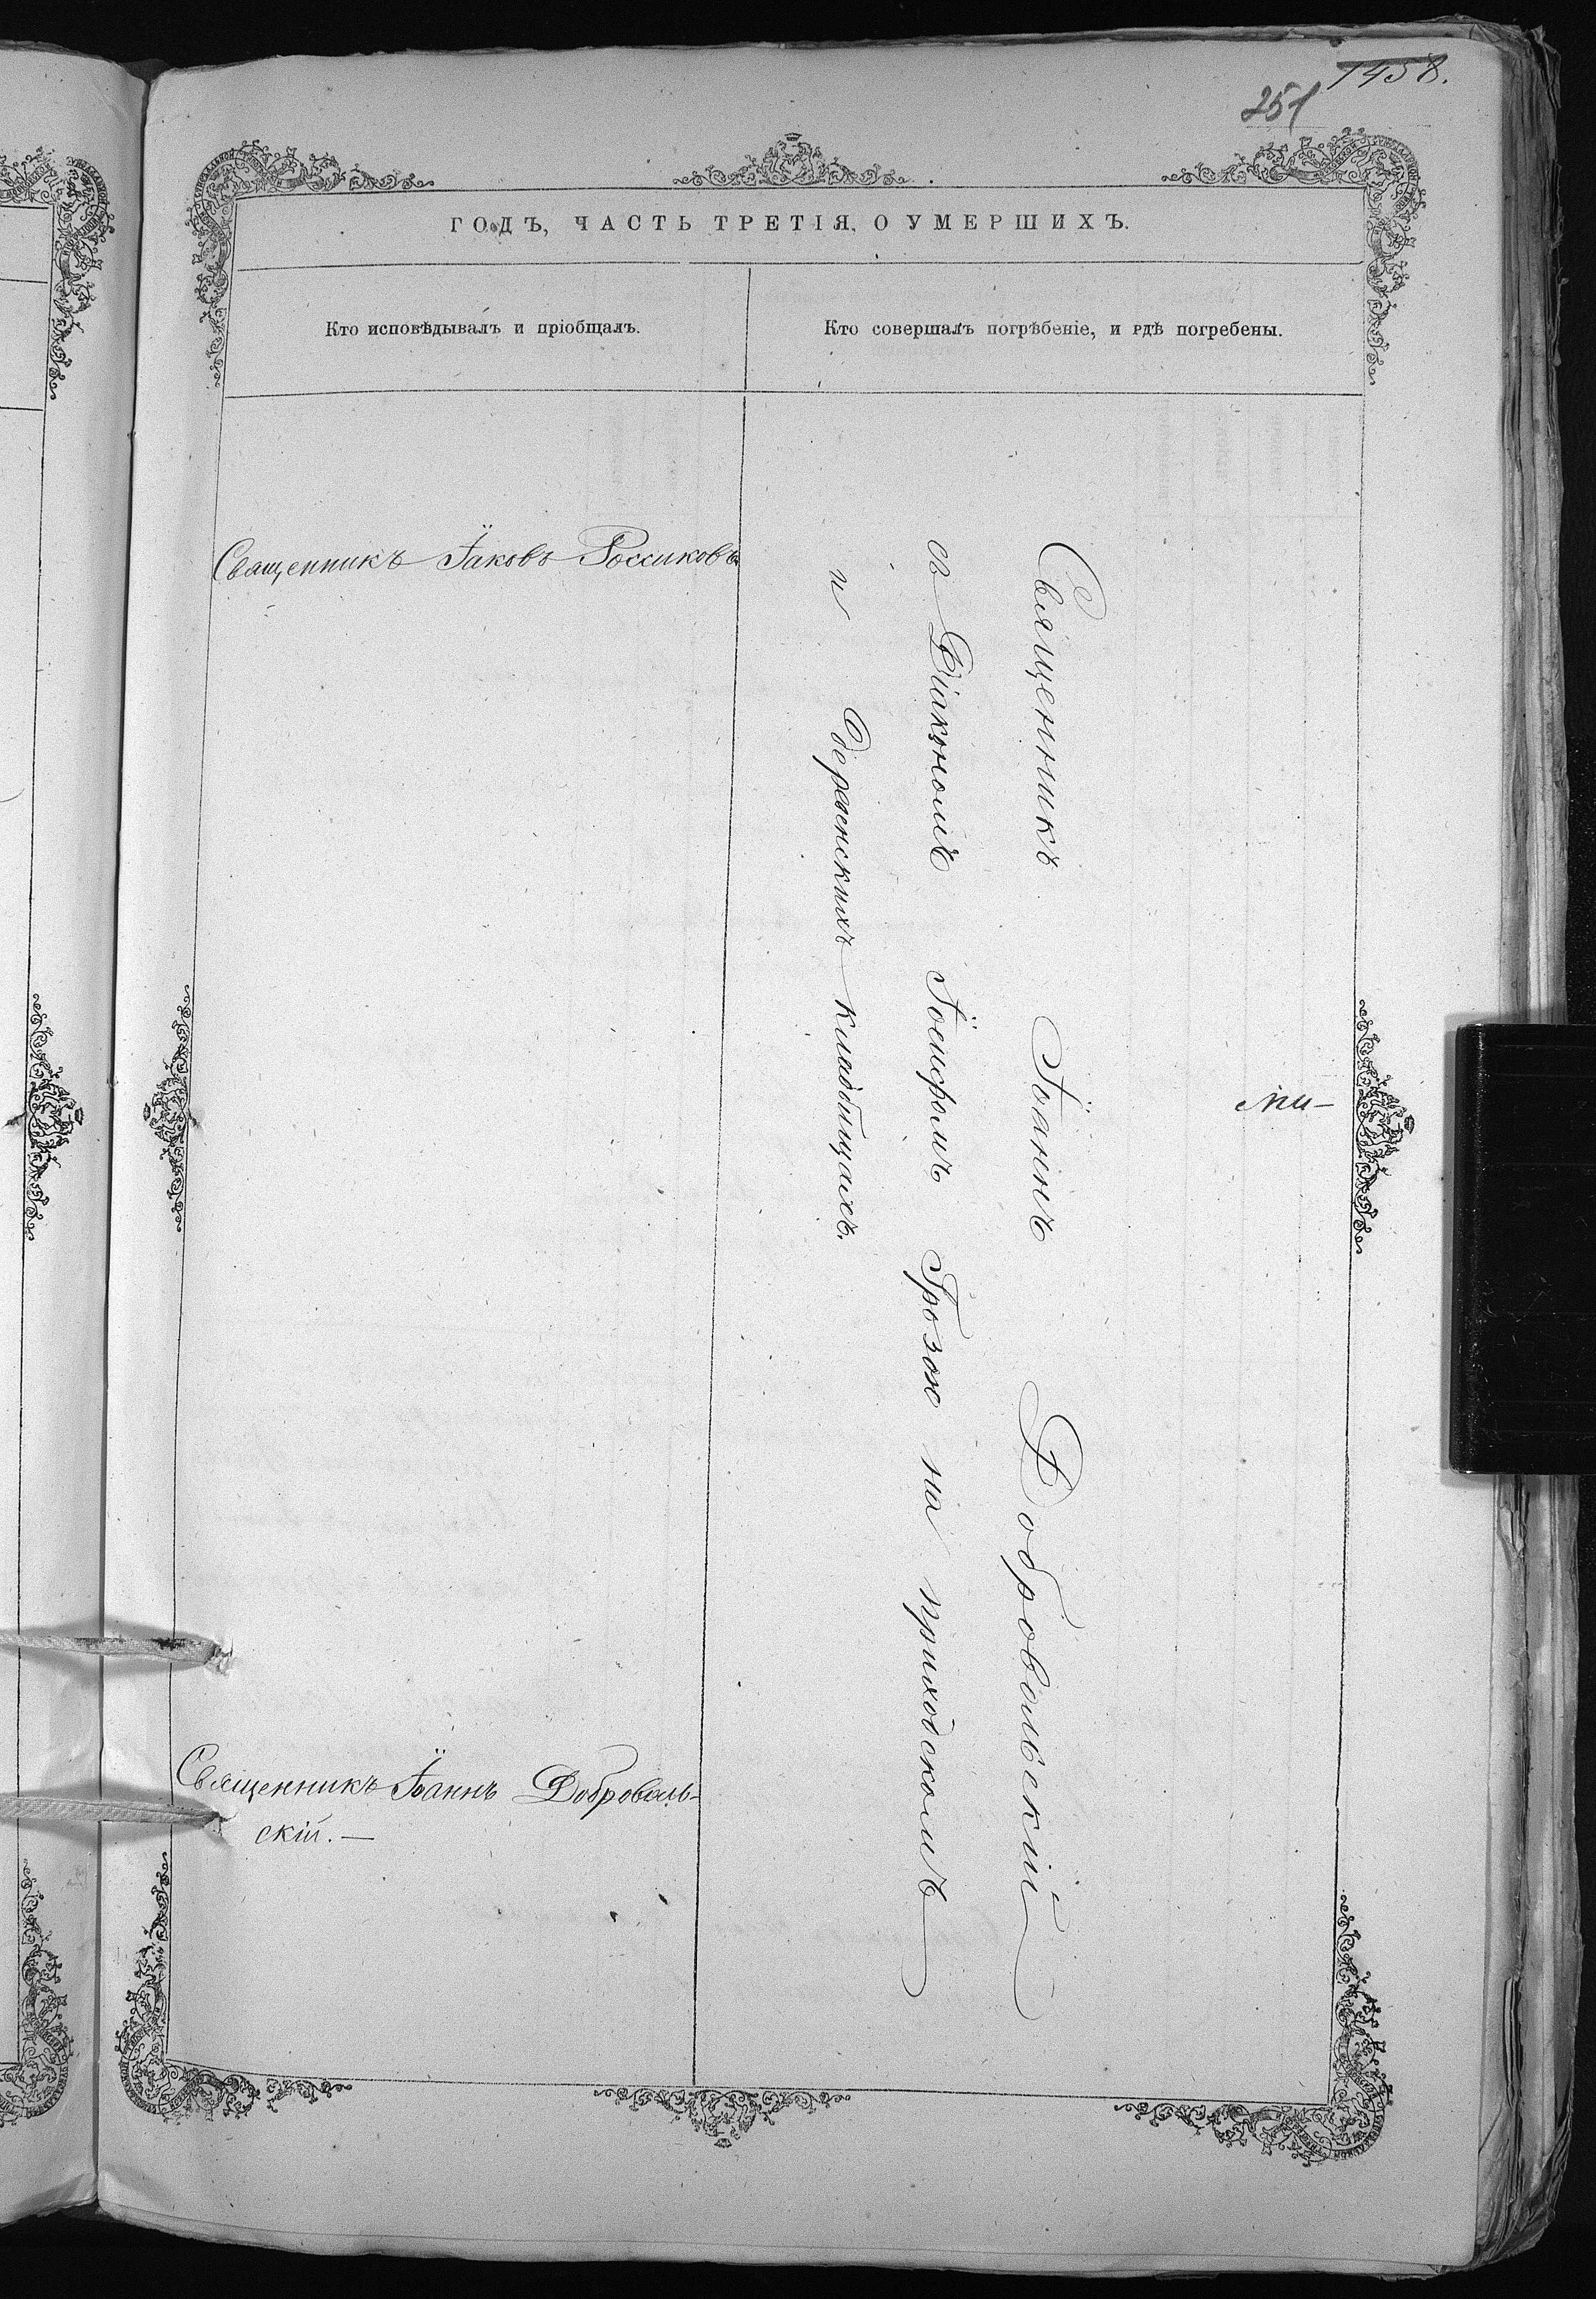 1458.
251
ГОДЪ, ЧАСТЬ ТРЕТІЯ, О УМЕРШИХЪ.
Кто исповѣдывалъ и пріобщалъ.
Кто совершалъ погрѣбеніе, и гдѣ погребены.
Священникъ Іаковъ Россиковъ
Священникъ Іоаннъ Доброволь-
скій. —
Священникъ Іоаннъ Добровольскій
съ Діакономъ Іосифомъ Грозою на приходскомъ
и кладбищахъ.